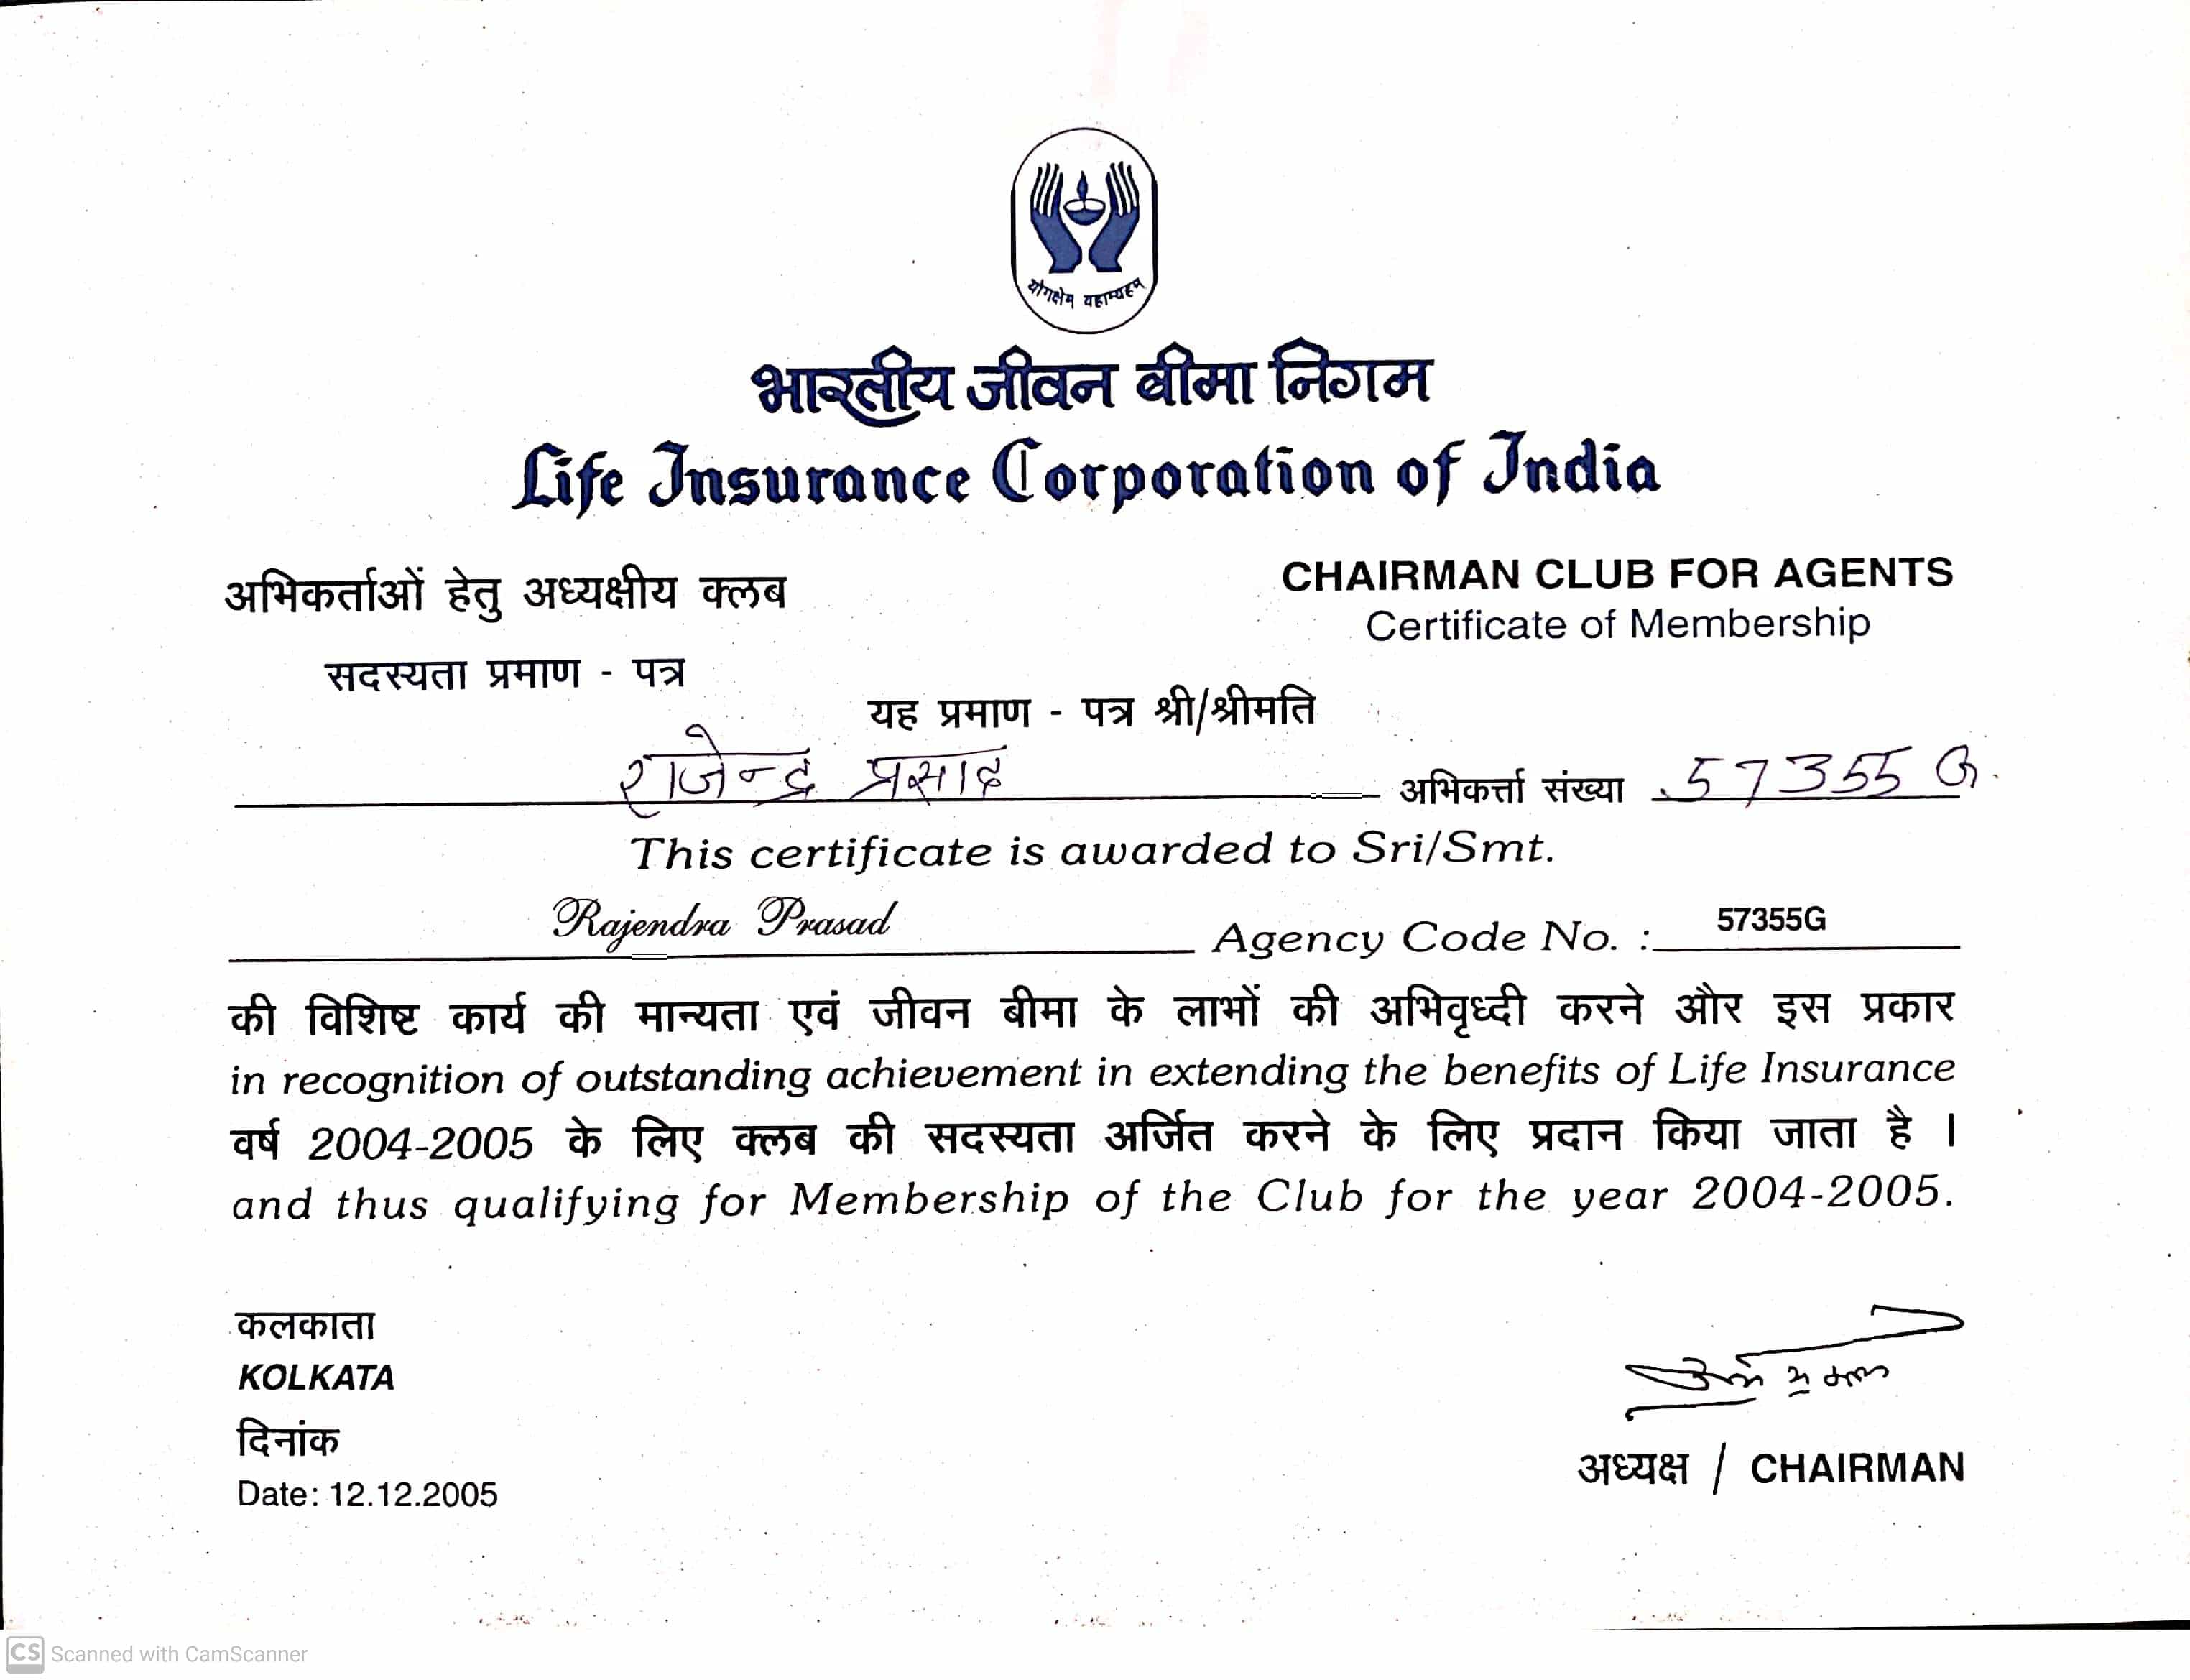 योगक्षेमं वहाम्यहम्
भारतीय जीवन बीमा निगम
Life Insurance Corporation of India
अभिकर्ताओं हेतु अध्यक्षीय क्लब
सदस्यता प्रमाण - पत्र
CHAIRMAN CLUB FOR AGENTS
Certificate of Membership
यह प्रमाण - पत्र श्री/श्रीमति
राजेन्द्र प्रसाद अभिकर्त्ता संख्या 57355 G.
This certificate is awarded to Sri/Smt.
Rajendra Prasad Agency Code No. : 57355G
की विशिष्ट कार्य की मान्यता एवं जीवन बीमा के लाभों की अभिवृध्दी करने और इस प्रकार
in recognition of outstanding achievement in extending the benefits of Life Insurance
वर्ष 2004-2005 के लिए क्लब की सदस्यता अर्जित करने के लिए प्रदान किया जाता है ।
and thus qualifying for Membership of the Club for the year 2004-2005.
कलकाता
KOLKATA
दिनांक
Date: 12.12.2005
अध्यक्ष / CHAIRMAN
CS Scanned with CamScanner